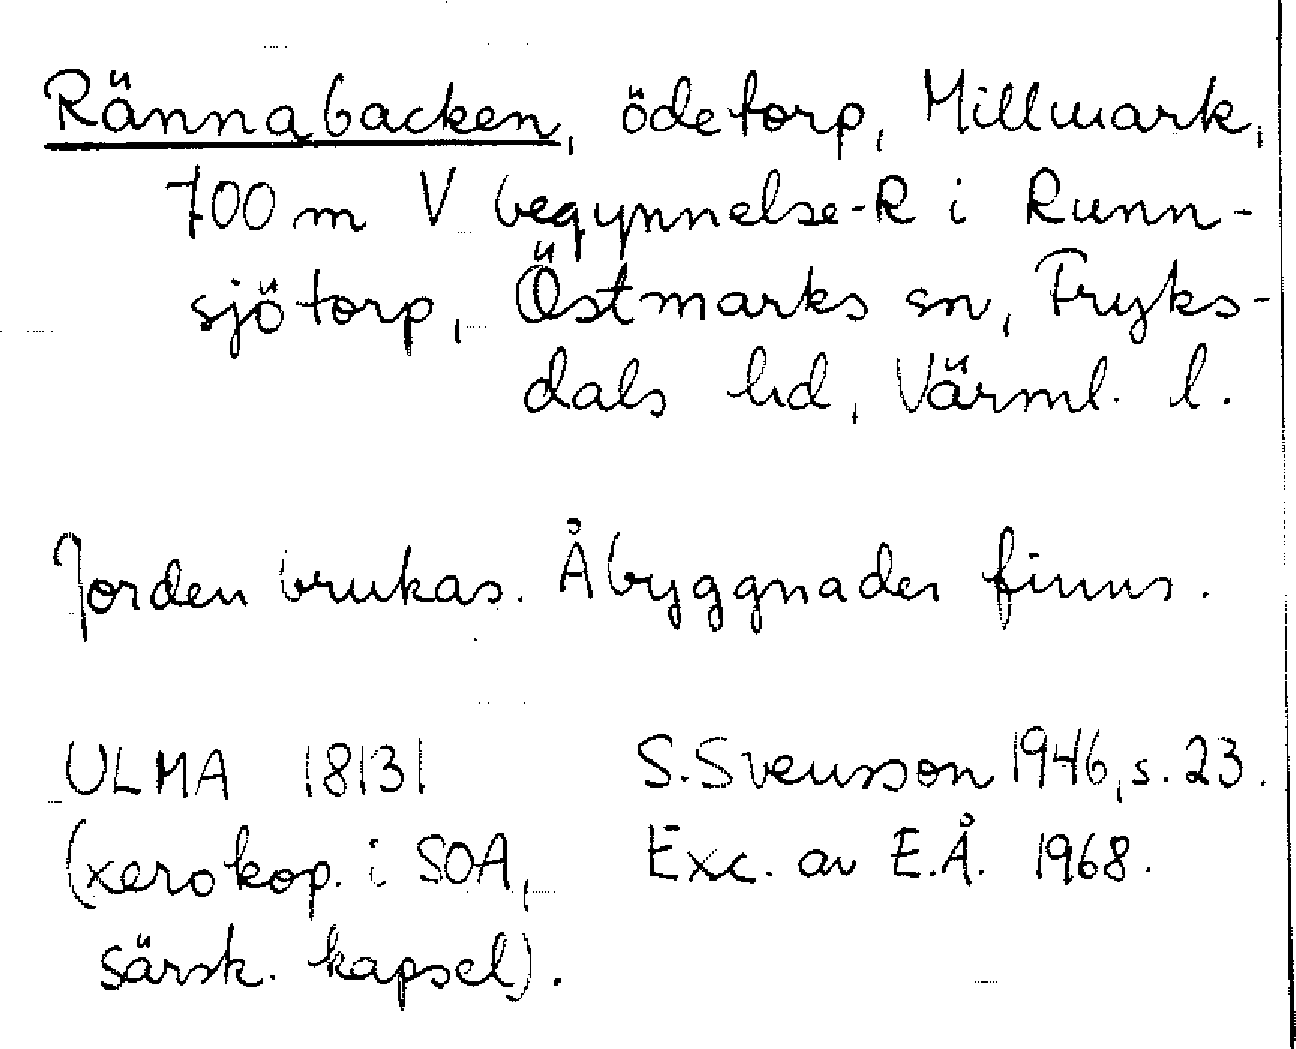 Rännabacken, ödetorp, Millmark,
700 m V begynnelse-R i Runn-
sjötorp, Östmarks sn, Fryks-
dals hd, Värml. l.
Jorden brukas. Åbyggnader finns.
ULMA 18131
(xerokop. i SOA,
särsk. kapsel).
S. Svensson 1946, s. 23.
Exc. av E.Å. 1968.